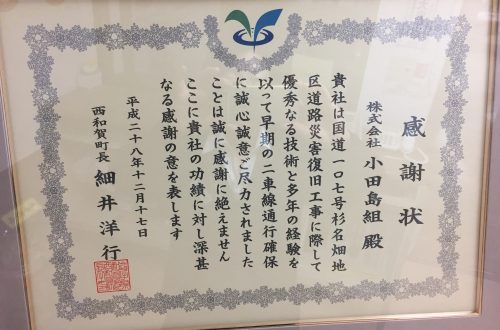 感謝状
株式会社 小田島組 殿
貴社は国道一〇七号杉名畑地
区道路災害復旧工事に際して
優秀なる技術と多年の経験を
以って早期の二車線通行確保
に誠心誠意ご尽力されました
ことは誠に感謝に絶えません
ここに貴社の功績に対し深甚
なる感謝の意を表します
平成二十八年十二月十七日
西和賀町長 細井洋行